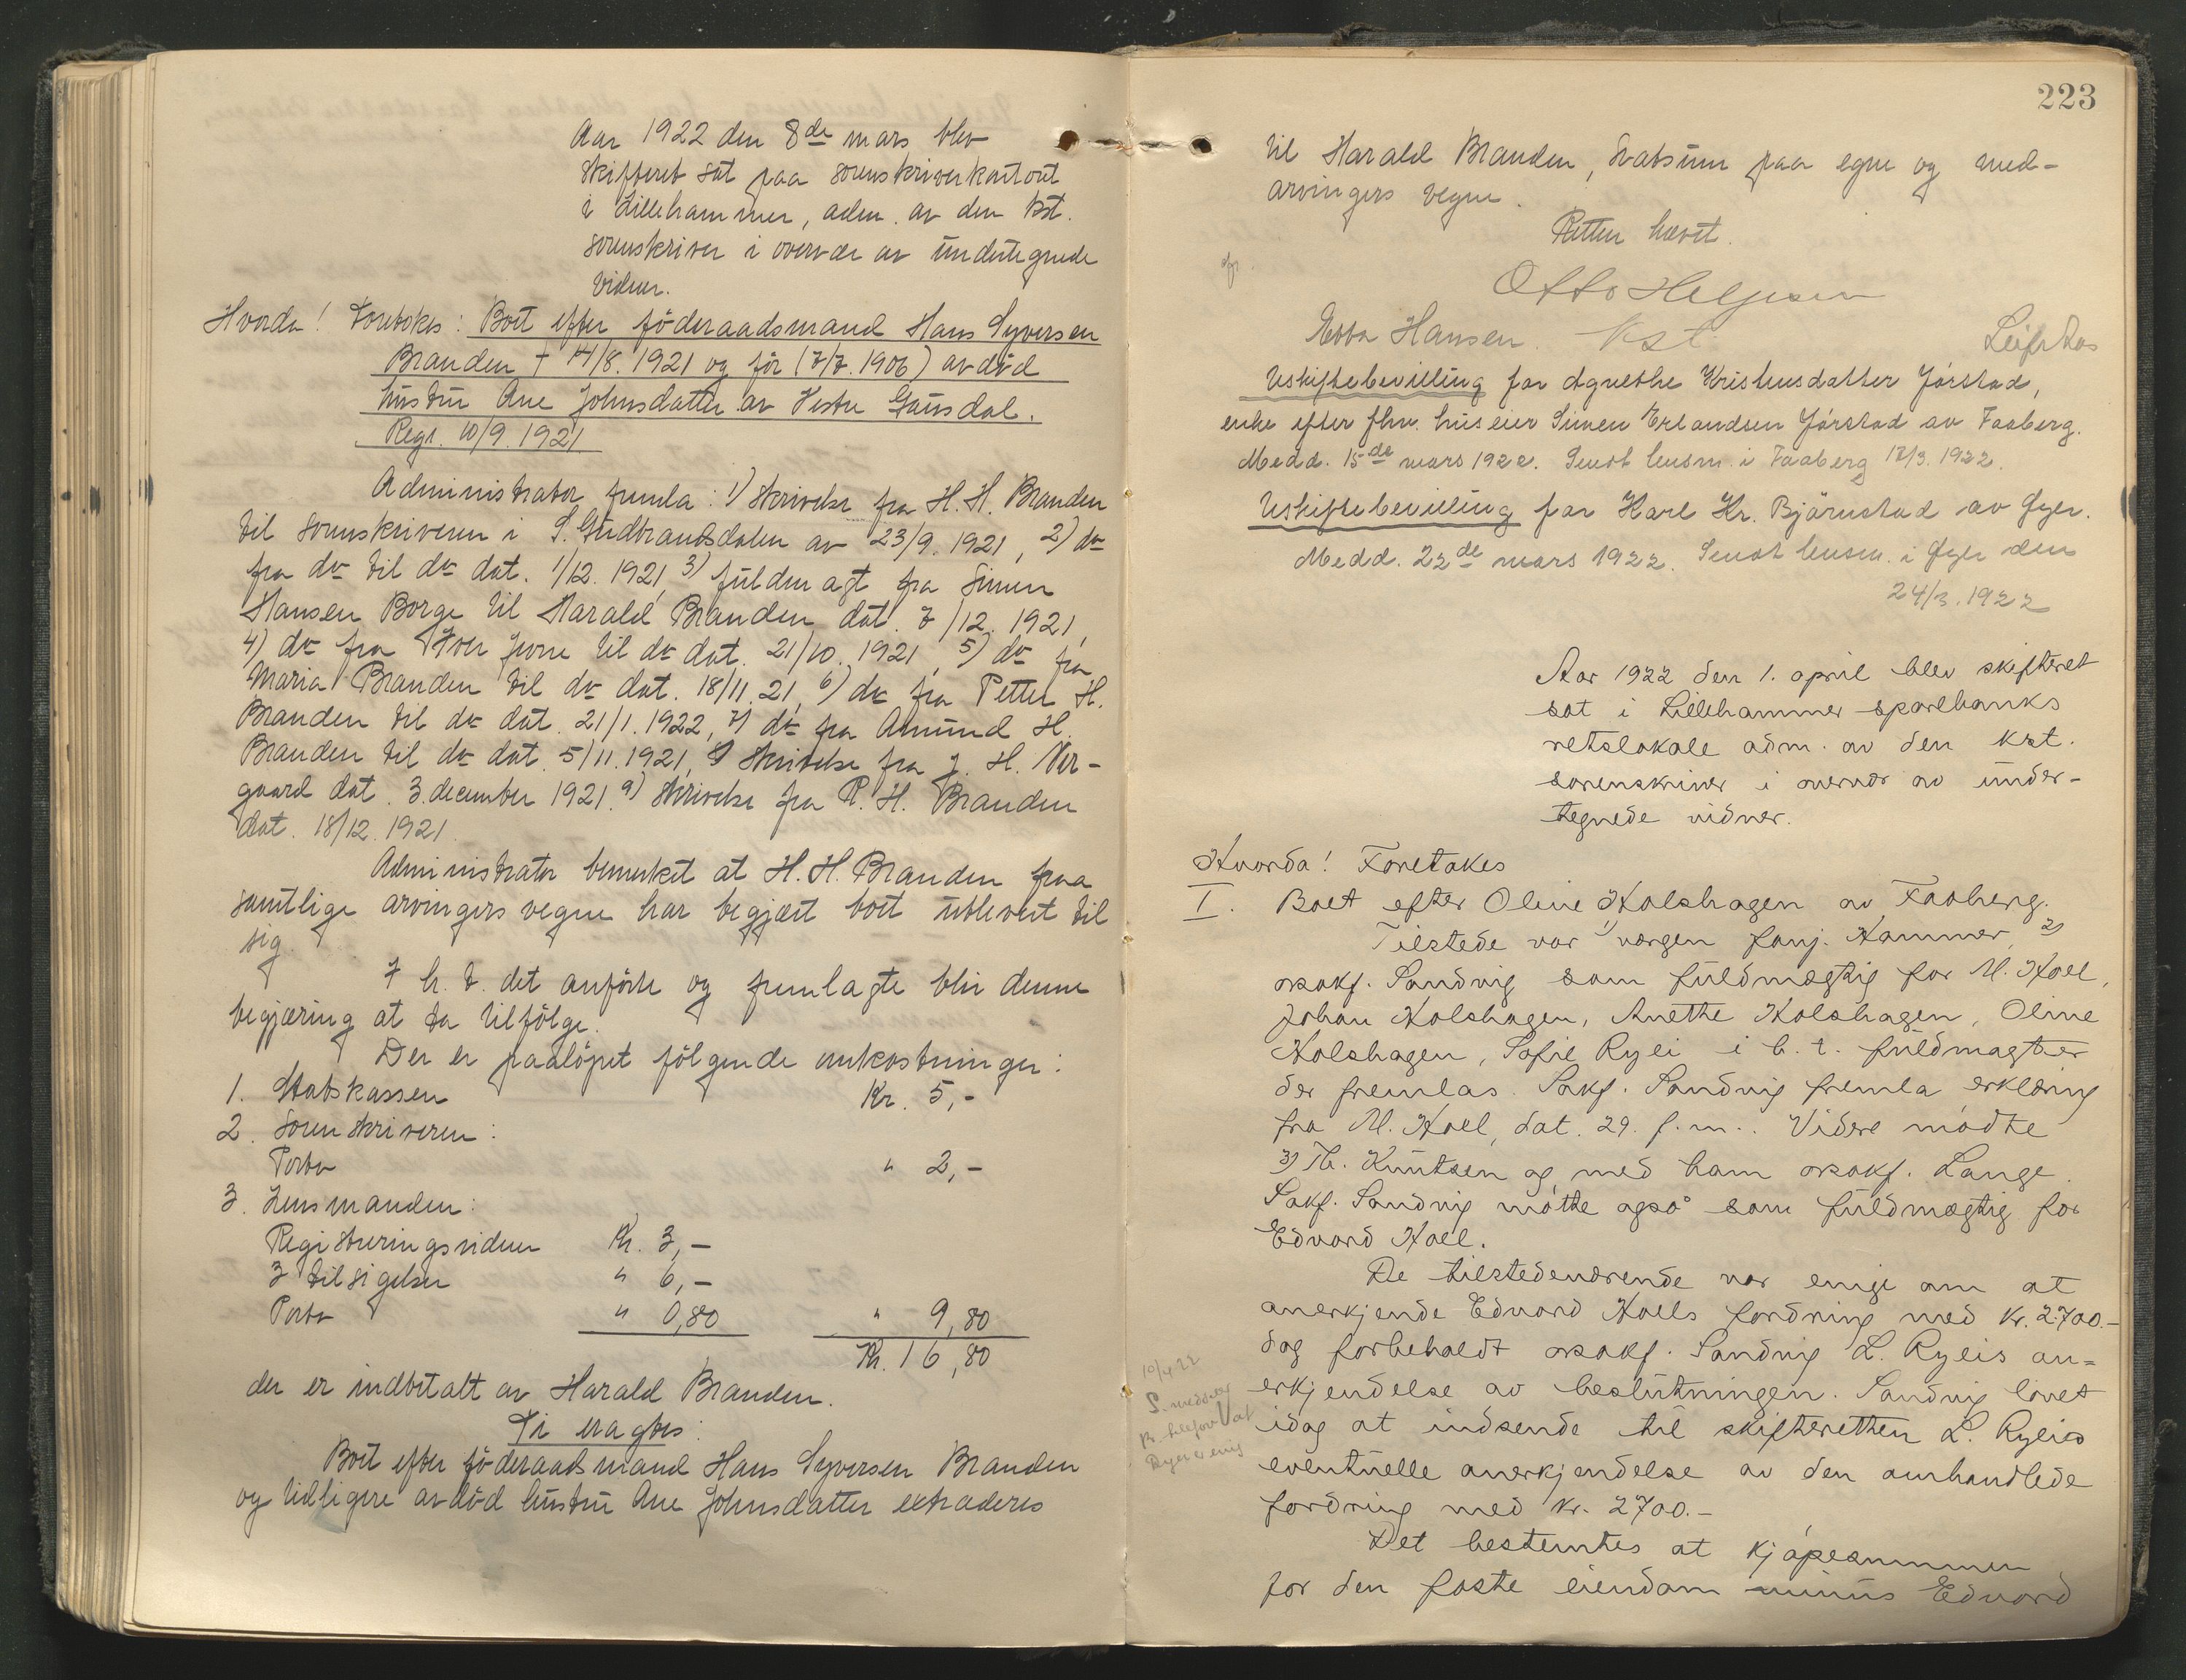 Aar 1922 den 8de mars blev
skifteret sat paa sorenskriverkontoret
i Lillehammer, adm. av den kst.
sorenskriver i overvær av undertegnede
vidner.
Hvorda! Foretokes: Boet efter föderaadsmand Hans Syversen
Branden † 14/8. 1921 og för (7/7. 1906) avdöd
hustru Ane Johnsdatter av Vestre Gausdal.
Regs. 10/9. 1921
Administrator fremla: 1) skrivelse fra H. H. Branden
til sorenskriveren i S. Gudbrandsdalen av 23/9. 1921, 2) do
fra do til do dat. 1/12. 1921, 3) fuldmagt fra Simen
Hansen Borge til Harald Branden dat. 7/12. 1921,
4) do fra Iver til do dat. 21/10. 1921, 5) do fra
Maria Branden til do dat. 18/11. 21, 6) do fra Petter H.
Branden til do dat. 21/1. 1922, 7) do fra Amund H.
Branden til do dat. 5/11. 1921, 8) skrivelse fra J. H. Ver-
gaard dat. 3. december 1921. 9) skrivelse fra P. H. Branden
dat. 18/12. 1921.
Administrator bemerket at H. H. Branden paa
samtlige arvingers vegne har begjært boet utlevert til
sig.
I h. t. det anförte og fremlagte blir denne
begjæring at ta tilfölge.
Der er paalöpet fölgende omkostninger:
1. Statskassen Kr. 5,-
2. Sorenskriveren:
Porto " 2,-
3. Lensmanden:
Registreringsvidner Kr. 3,-
3 tilsigelser " 6,-
Porto " 0,80 " 9,80
Kr. 16,80
der er indbetalt av Harald Branden.
Ti eragtes:
Boet efter föderaadsmand Hans Syversen Branden
og tidligere avdöd hustru Ane Johnsdatter extraderes
223
til Harald Branden, Svatsum paa egne og med-
arvingers vegne.
Retten hævet.
Otto Helgesen
Kst.
Ebba Hansen. Leif
Uskiftebevilling for Agnethe Kristensdatter Jörstad,
enke efter fhv. huseier Simen Erlandsen Jörstad av Faaberg.
Medd. 15de mars 1922. Sendt lensm. i Faaberg 17/3. 1922.
Uskiftebevilling for Karl Kr. Bjärnstad av Øyer.
Medd. 22de mars 1922. Sendt lensm. i Øyer den
24/3. 1922
Aar 1922 den 1. april blev skifteret
sat i Lillehammer sparebanks
retslokale adm. av den kst.
sorenskriver i overvær av under-
tegnede vidner.
Hvorda! Foretokes
I. Boet efter Oline Kolshagen av Faaberg.
Tilstede var 1) vergen Hammer, 2)
orsakf. Sandvig som fuldmægtig for M. Hoel,
Johan Kolshagen, Anethe Kolshagen, Oline
Kolshagen, Sofie Rylei i h. t. fuldmagter
der fremlas. Sakf. Sandvig fremla erklæring
fra M. Hoel, dat. 29. f. m.. Videre mödte
3) Th. Knutsen og med ham orsakf. Lange.
Sakf. Sandvig mötte også som fuldmægtig for
Edvard Hoel.
De tilstedeværende var enige om at
anerkjende Edvard Hoels fordring med kr. 2700.-
dog forbeholdt orsakf. Sandvig L. Ryleis an=
erkjendelse av beslutningen. Sandvig lovet
idag at indsende til skifteretten L. Ryleis
eventuelle anerkjendelse av den omhandlede
fordring med kr. 2700.-
Det bestemtes at kjöpesummen
for den faste eiendom minus Edvard
10/4 22